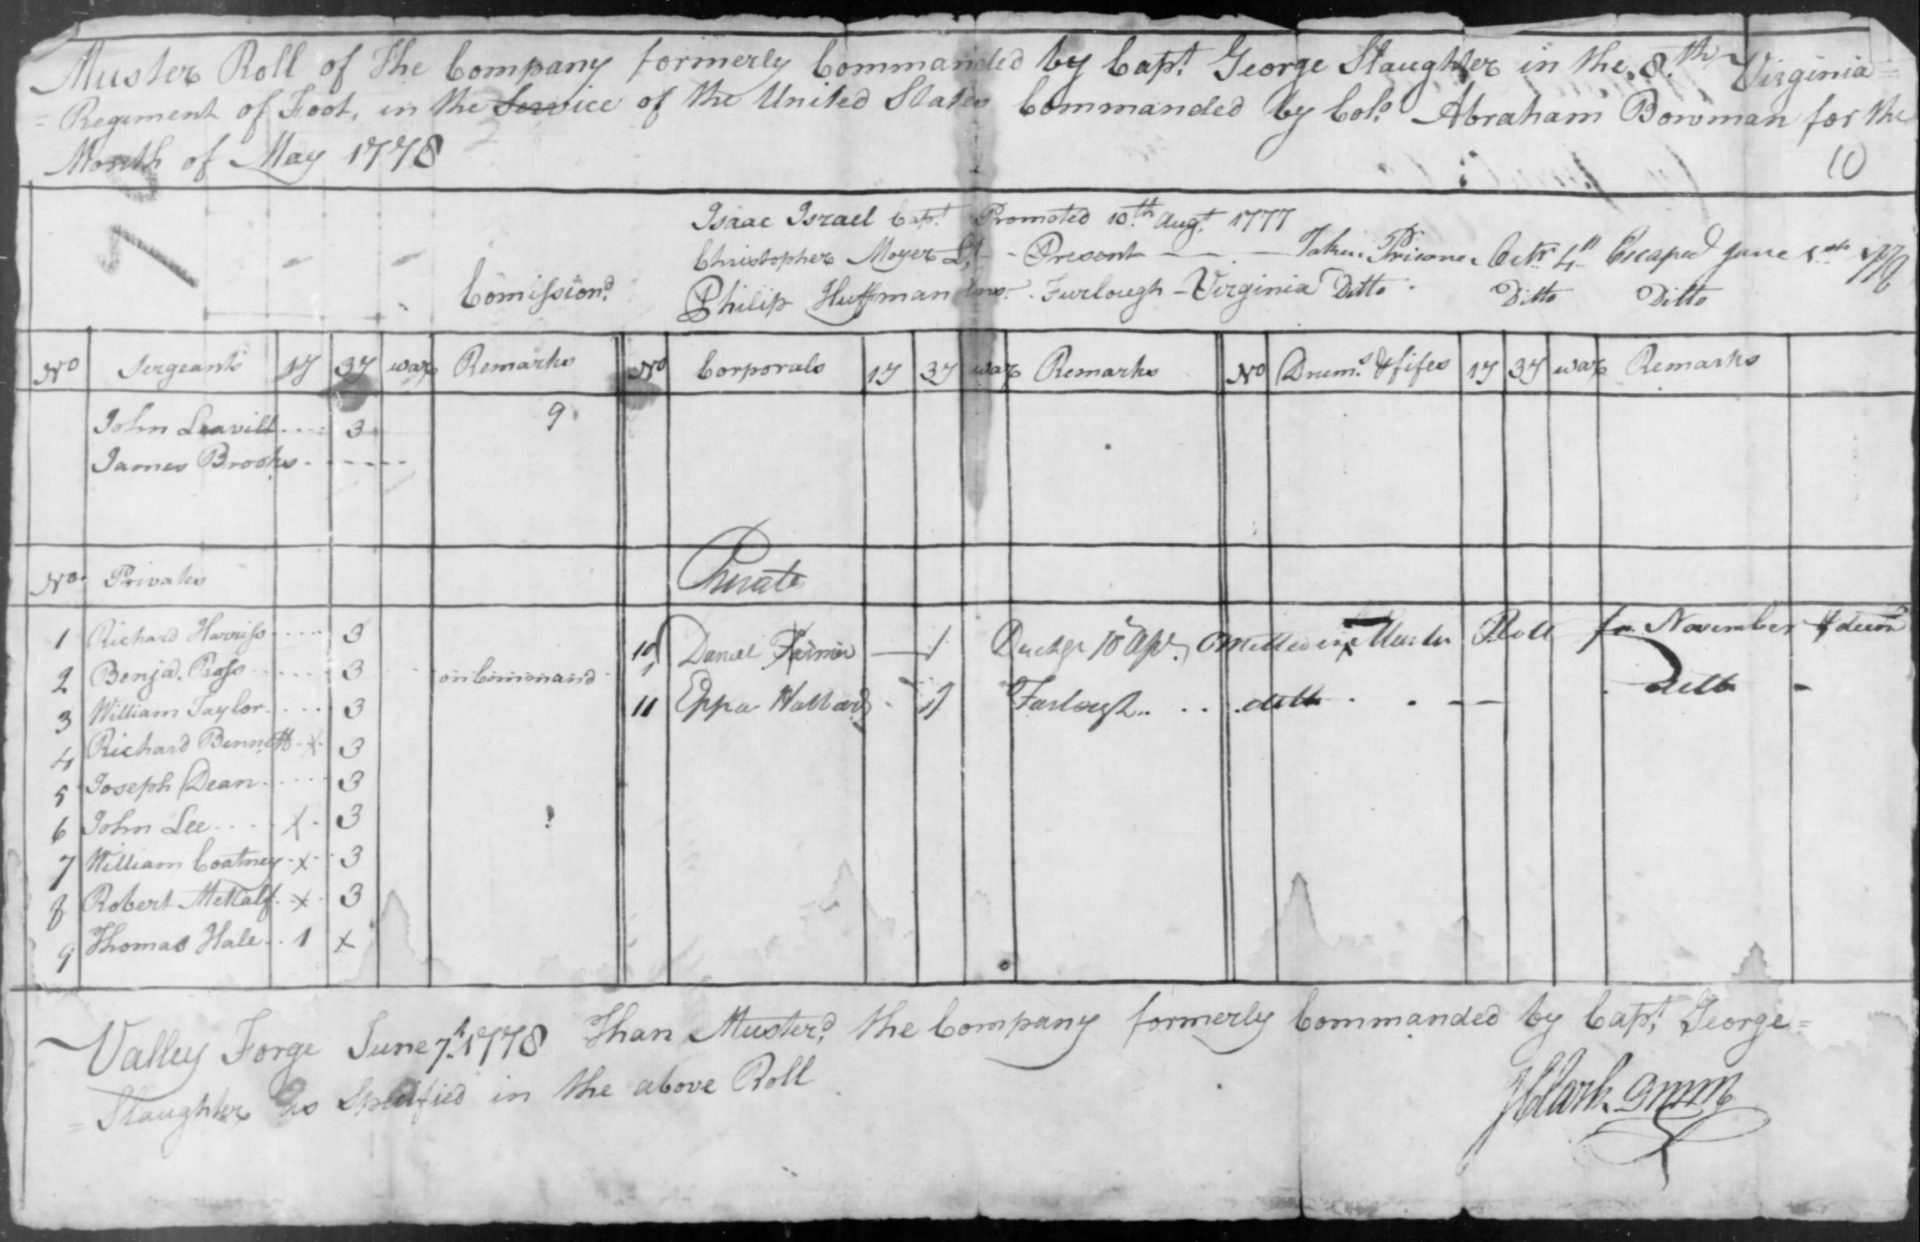 Muster Roll of The Company formerly Commanded by Capt. George Slaughter in the 8th Virginia =
= Regiment of Foot, in the Service of the United States Commanded by Colo. Abraham Bowman for the
Month of May 1778
10
Isaac Israel Capt. Promoted 10th Augt. 1777
Christopher Moyer Lt. - Present - Taken Prisoner Octr. 4th Escaped June
Comission'd Philip Huffman Ens. Furlough - Virginia Ditto Ditto Ditto
No Sergeants 1y 3y war Remarks No Corporals 1y 3y war Remarks No Drums. & fifes 1y 3y war Remarks
John Leavill 3 9
James Brooks
No. Privates Privates
1 Richard Harriss 3
2 Benja. Ross 3 on Command
3 William Taylor 3
4 Richard Bennett x 3
5 Joseph Dean 3
6 John Lee x 3
7 William Coatney x 3
8 Robert MeKalf x 3
9 Thomas Hale 1 x
10 Daniel Farmer 1 10 Omitted in Muster Roll for November &
11 Eppa Hubbard 1 Furlough ditto ditto
Valley Forge June 7th 1778 Than Musterd. the Company formerly Commanded by Capt. George =
= Slaughter as Specified in the above Roll
JClark DMM